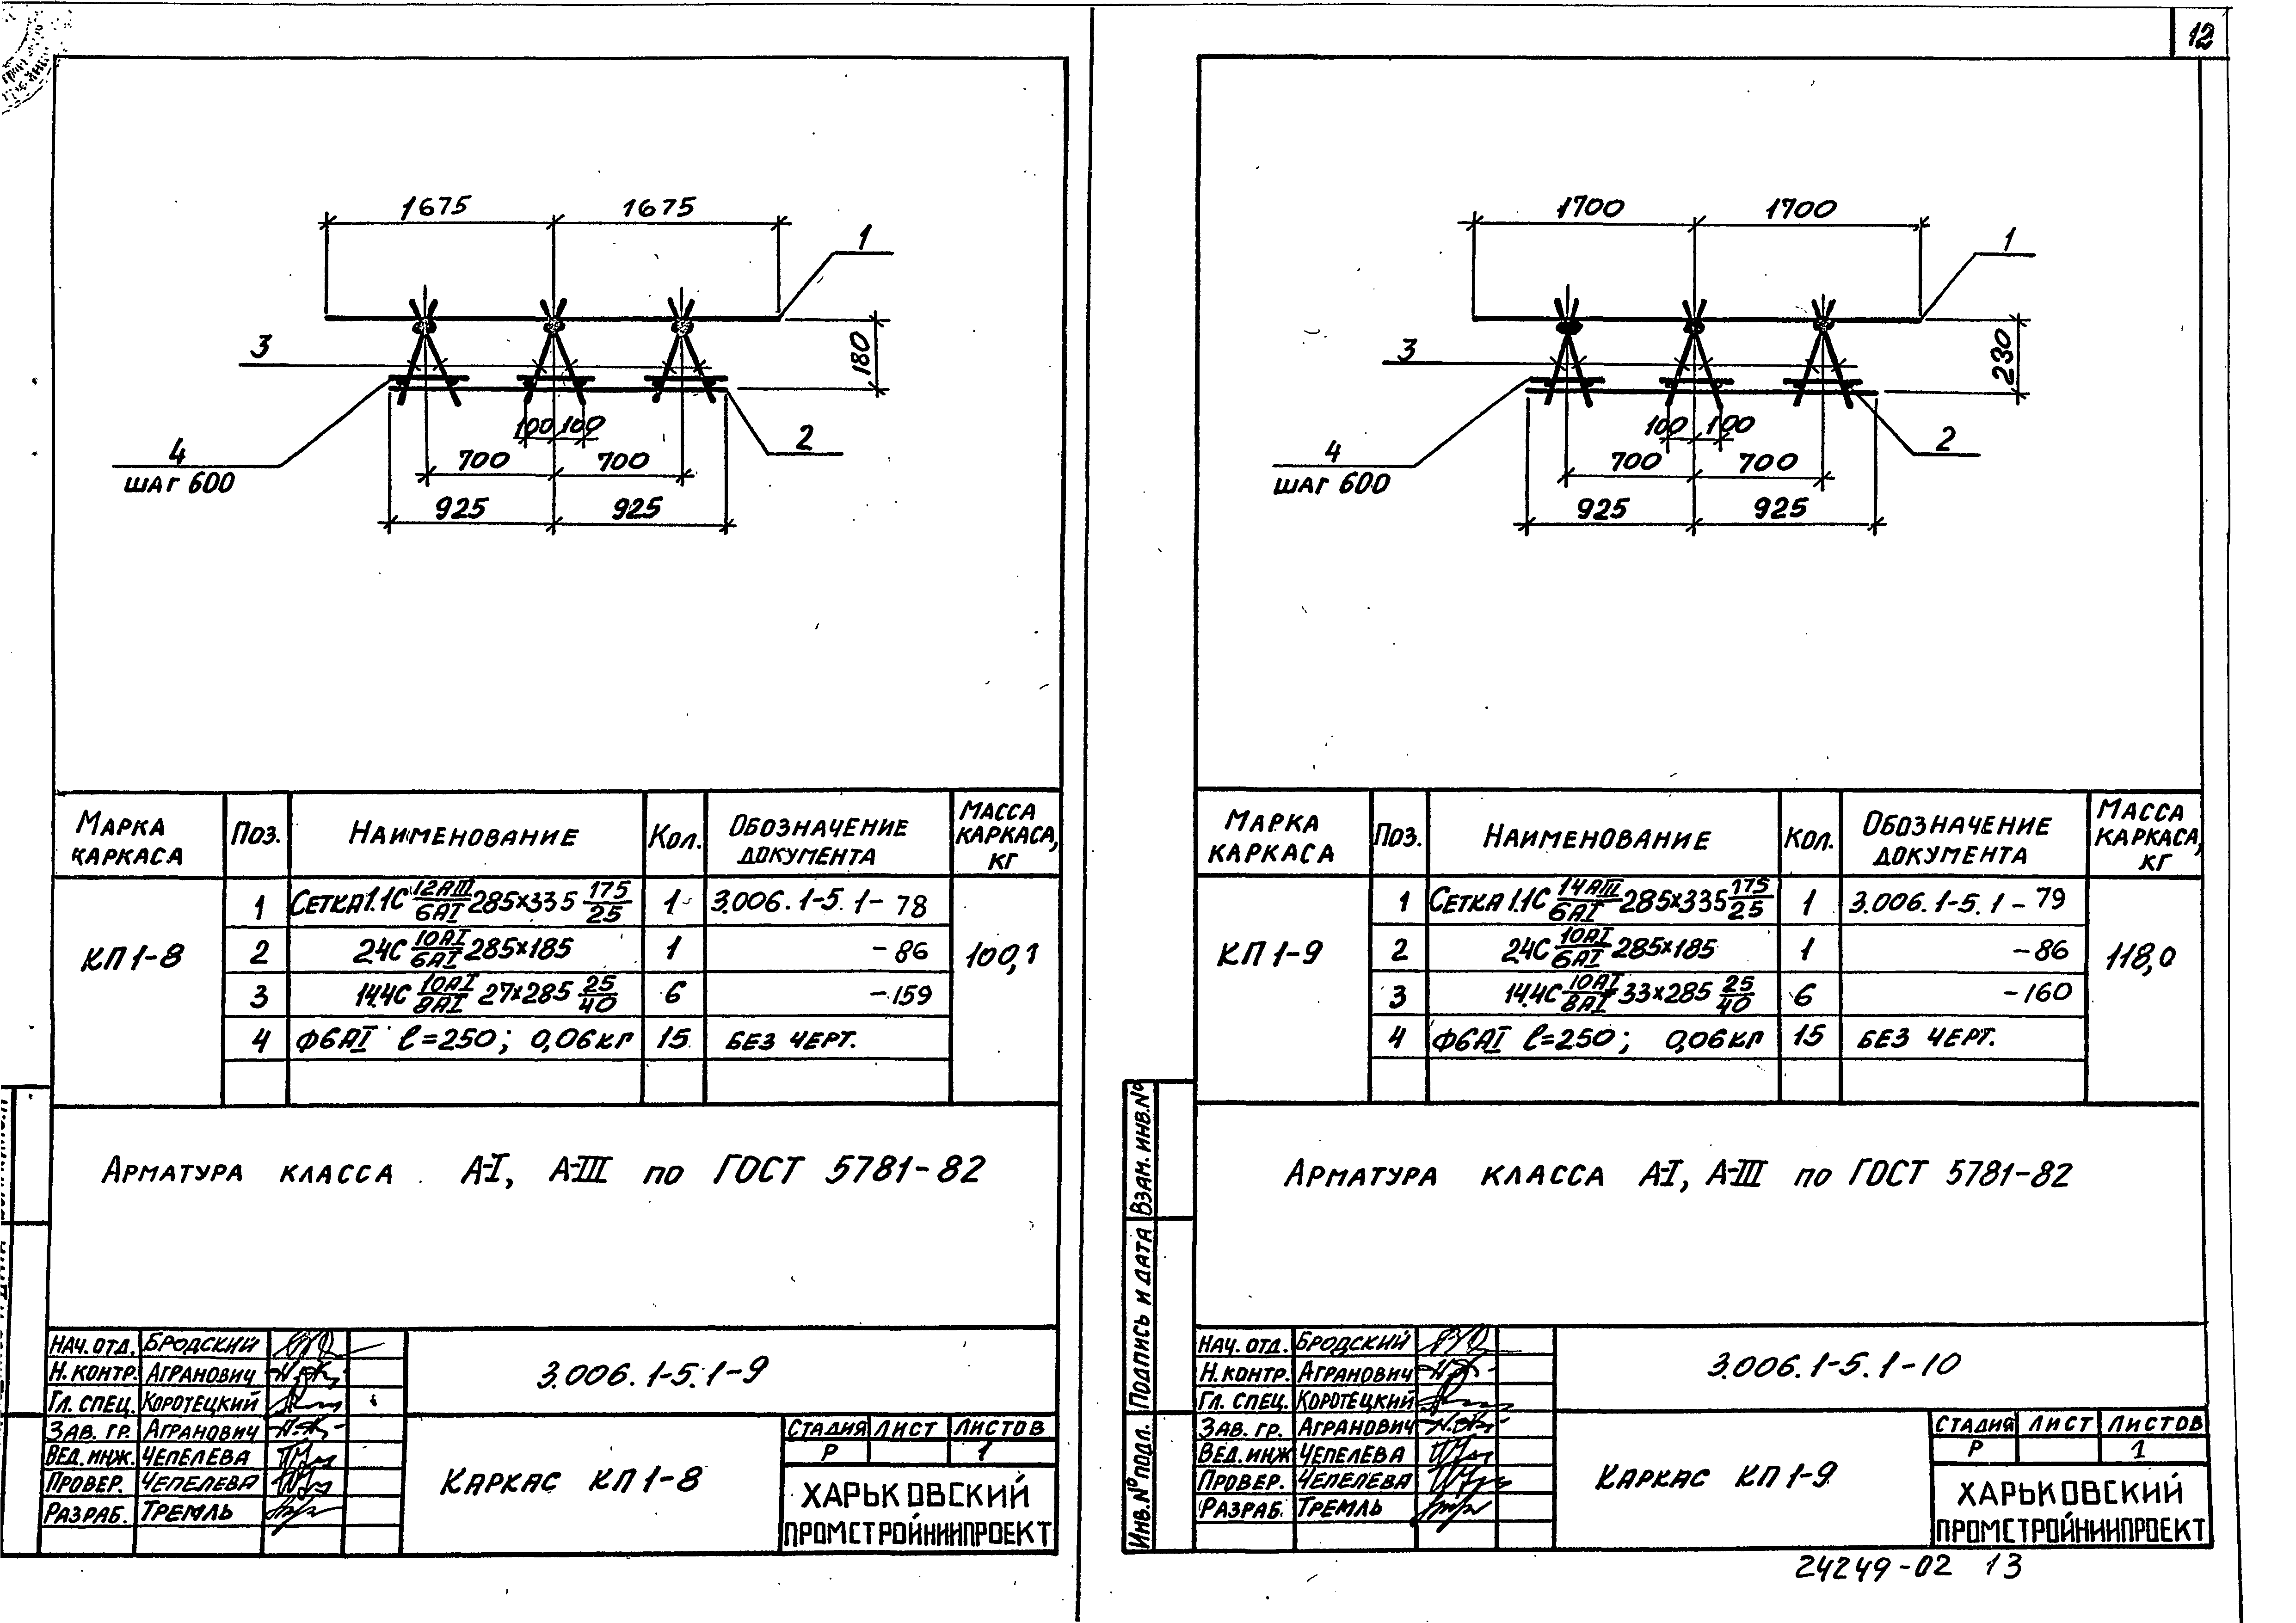 12
1675 1675
1
3
180
100 100
2
4
700 700
ШАГ 600
925 925
МАРКА КАРКАСА ПОЗ. НАИМЕНОВАНИЕ КОЛ. ОБОЗНАЧЕНИЕ ДОКУМЕНТА МАССА КАРКАСА, КГ
КП1-8 100,1
1 СЕТКА 1.1С 12АIII/6АI 285×335 175/25 1 3.006.1-5.1-78
2 24С 10АI/6АI 285×185 1 -86
3 14.4С 10АI/8АI 27×285 25/40 6 -159
4 Ф6АI ℓ=250; 0,06КГ 15 БЕЗ ЧЕРТ.
АРМАТУРА КЛАССА А-I, А-III ПО ГОСТ 5781-82
НАЧ. ОТД. БРОДСКИЙ
Н. КОНТР. АГРАНОВИЧ
ГЛ. СПЕЦ. КОРОТЕЦКИЙ
ЗАВ. ГР. АГРАНОВИЧ
ВЕД. ИНЖ. ЧЕПЕЛЕВА
ПРОВЕР. ЧЕПЕЛЕВА
РАЗРАБ. ТРЕМЛЬ
3.006.1-5.1-9
КАРКАС КП1-8
СТАДИЯ ЛИСТ ЛИСТОВ
Р 1
ХАРЬКОВСКИЙ
ПРОМСТРОЙНИИПРОЕКТ
1700 1700
1
3
230
100 100
2
4
700 700
ШАГ 600
925 925
МАРКА КАРКАСА ПОЗ. НАИМЕНОВАНИЕ КОЛ. ОБОЗНАЧЕНИЕ ДОКУМЕНТА МАССА КАРКАСА, КГ
КП1-9 118,0
1 СЕТКА 1.1С 14АIII/6АI 285×335 175/25 1 3.006.1-5.1-79
2 24С 10АI/6АI 285×185 1 -86
3 14.4С 10АI/8АI 33×285 25/40 6 -160
4 Ф6АI ℓ=250; 0,06КГ 15 БЕЗ ЧЕРТ.
АРМАТУРА КЛАССА А-I, А-III ПО ГОСТ 5781-82
ИНВ.№ ПОДЛ. ПОДПИСЬ И ДАТА ВЗАМ. ИНВ.№
НАЧ. ОТД. БРОДСКИЙ
Н. КОНТР. АГРАНОВИЧ
ГЛ. СПЕЦ. КОРОТЕЦКИЙ
ЗАВ. ГР. АГРАНОВИЧ
ВЕД. ИНЖ ЧЕПЕЛЕВА
ПРОВЕР. ЧЕПЕЛЕВА
РАЗРАБ. ТРЕМЛЬ
3.006.1-5.1-10
КАРКАС КП1-9
СТАДИЯ ЛИСТ ЛИСТОВ
Р 1
ХАРЬКОВСКИЙ
ПРОМСТРОЙНИИПРОЕКТ
24249-02 13